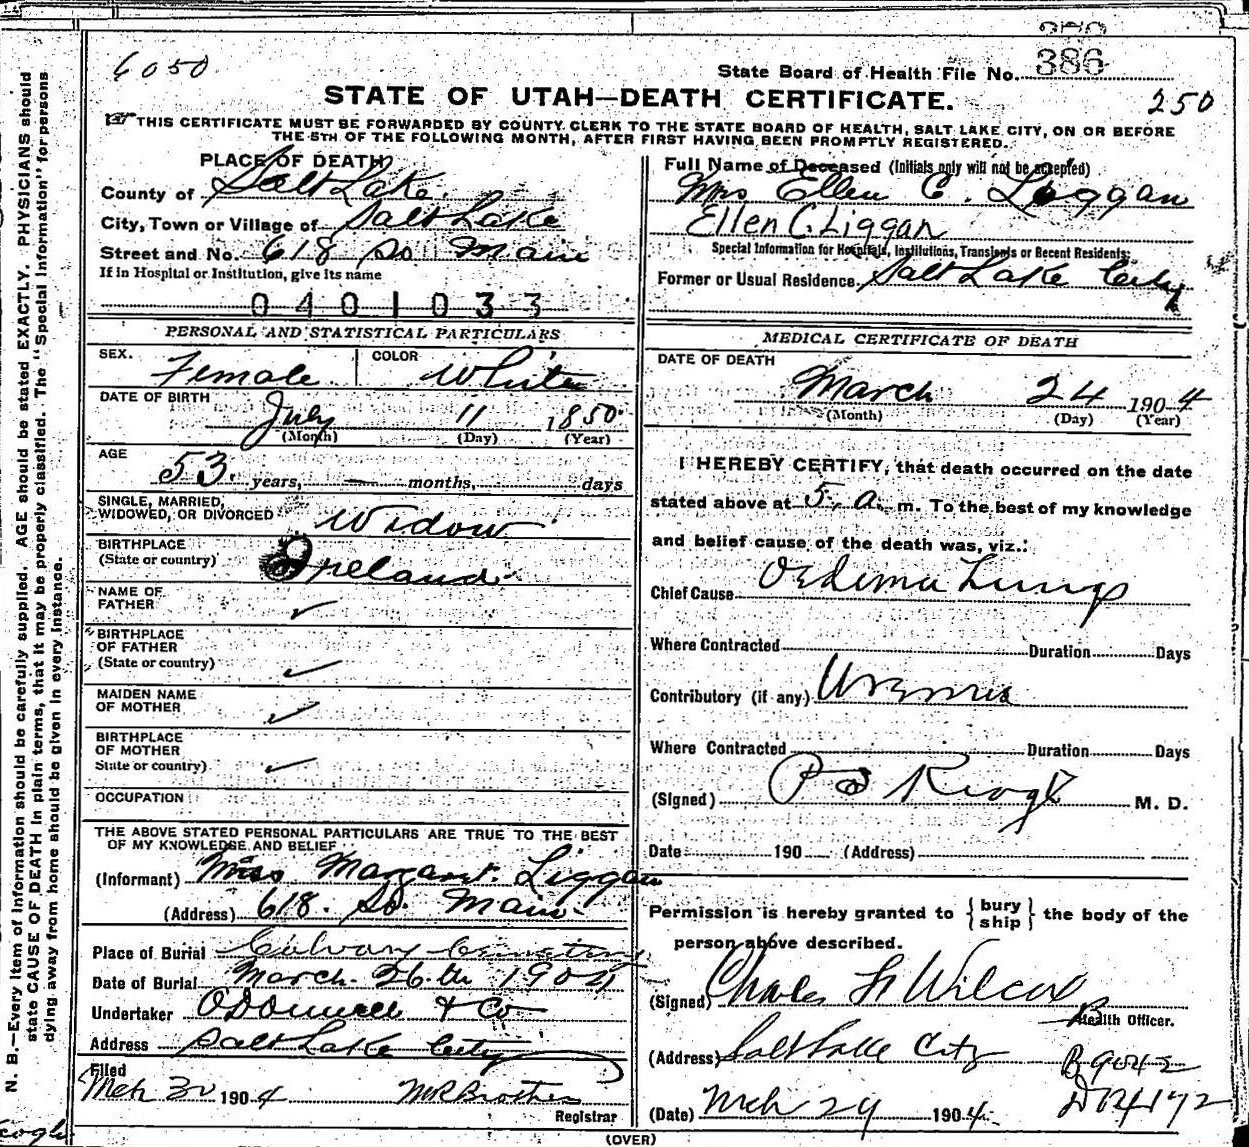 6050
State Board of Health File No. 386
250
STATE OF UTAH—DEATH CERTIFICATE.
THIS CERTIFICATE MUST BE FORWARDED BY COUNTY CLERK TO THE STATE BOARD OF HEALTH, SALT LAKE CITY, ON OR BEFORE
THE 5TH OF THE FOLLOWING MONTH, AFTER FIRST HAVING BEEN PROMPTLY REGISTERED.
PLACE OF DEATH
County of Salt Lake.
City, Town or Village of Salt Lake
Street and No. 618 So Main
If in Hospital or Institution, give its name
0401033
Full Name of Deceased (Initials only will not be accepted)
Mrs Ellen C. Loggan
Ellen C. Liggan
Special Information for Hospitals, Institutions, Transients or Recent Residents:
Former or Usual Residence. Salt Lake City
PERSONAL AND STATISTICAL PARTICULARS
SEX. Female
COLOR White
DATE OF BIRTH
July 11 1850.
(Month) (Day) (Year)
AGE
53. years, — months, days
SINGLE, MARRIED,
WIDOWED, OR DIVORCED Widow
BIRTHPLACE
(State or country) Ireland
NAME OF
FATHER ✓
BIRTHPLACE
OF FATHER
(State or country) ✓
MAIDEN NAME
OF MOTHER ✓
BIRTHPLACE
OF MOTHER
State or country) ✓
OCCUPATION
THE ABOVE STATED PERSONAL PARTICULARS ARE TRUE TO THE BEST
OF MY KNOWLEDGE AND BELIEF
(Informant) Miss Margaret Liggan
(Address) 618. So. Main-
Place of Burial Calvary Cemetery
Date of Burial March. 26.th 1904
Undertaker O'Donnell & Co
Address Salt Lake City
Filed
Mch 30 1904
Registrar
MEDICAL CERTIFICATE OF DEATH
DATE OF DEATH
March 24 1904
(Month) (Day) (Year)
I HEREBY CERTIFY, that death occurred on the date
stated above at 5, a. m. To the best of my knowledge
and belief cause of the death was, viz.:
Chief Cause Oedema Lungs
Where Contracted Duration Days
Contributory (if any) Uremia
Where Contracted Duration Days
(Signed) Keogh M. D.
Date 190 (Address)
Permission is hereby granted to {bury ship} the body of the
person above described.
(Signed) Charles Wilcox
Health Officer.
(Address) Salt Lake City B9042
(Date) Mch 24 1904. D14172
(OVER)
N. B.—Every item of information should be carefully supplied. AGE should be stated EXACTLY. PHYSICIANS should
state CAUSE OF DEATH in plain terms, that it may be properly classified. The "Special Information" for persons
dying away from home should be given in every instance.